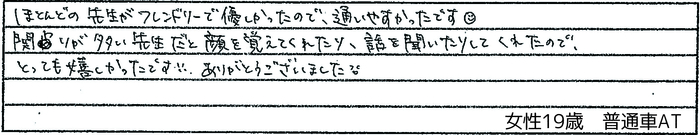 ほとんどの先生がフレンドリーで優しかったので、通いやすかったです☺
関わりが多い先生だと顔を覚えてくれたり、話を聞いたりしてくれたので、
とっても嬉しかったです!!. ありがとうございました
女性19歳　普通車AT